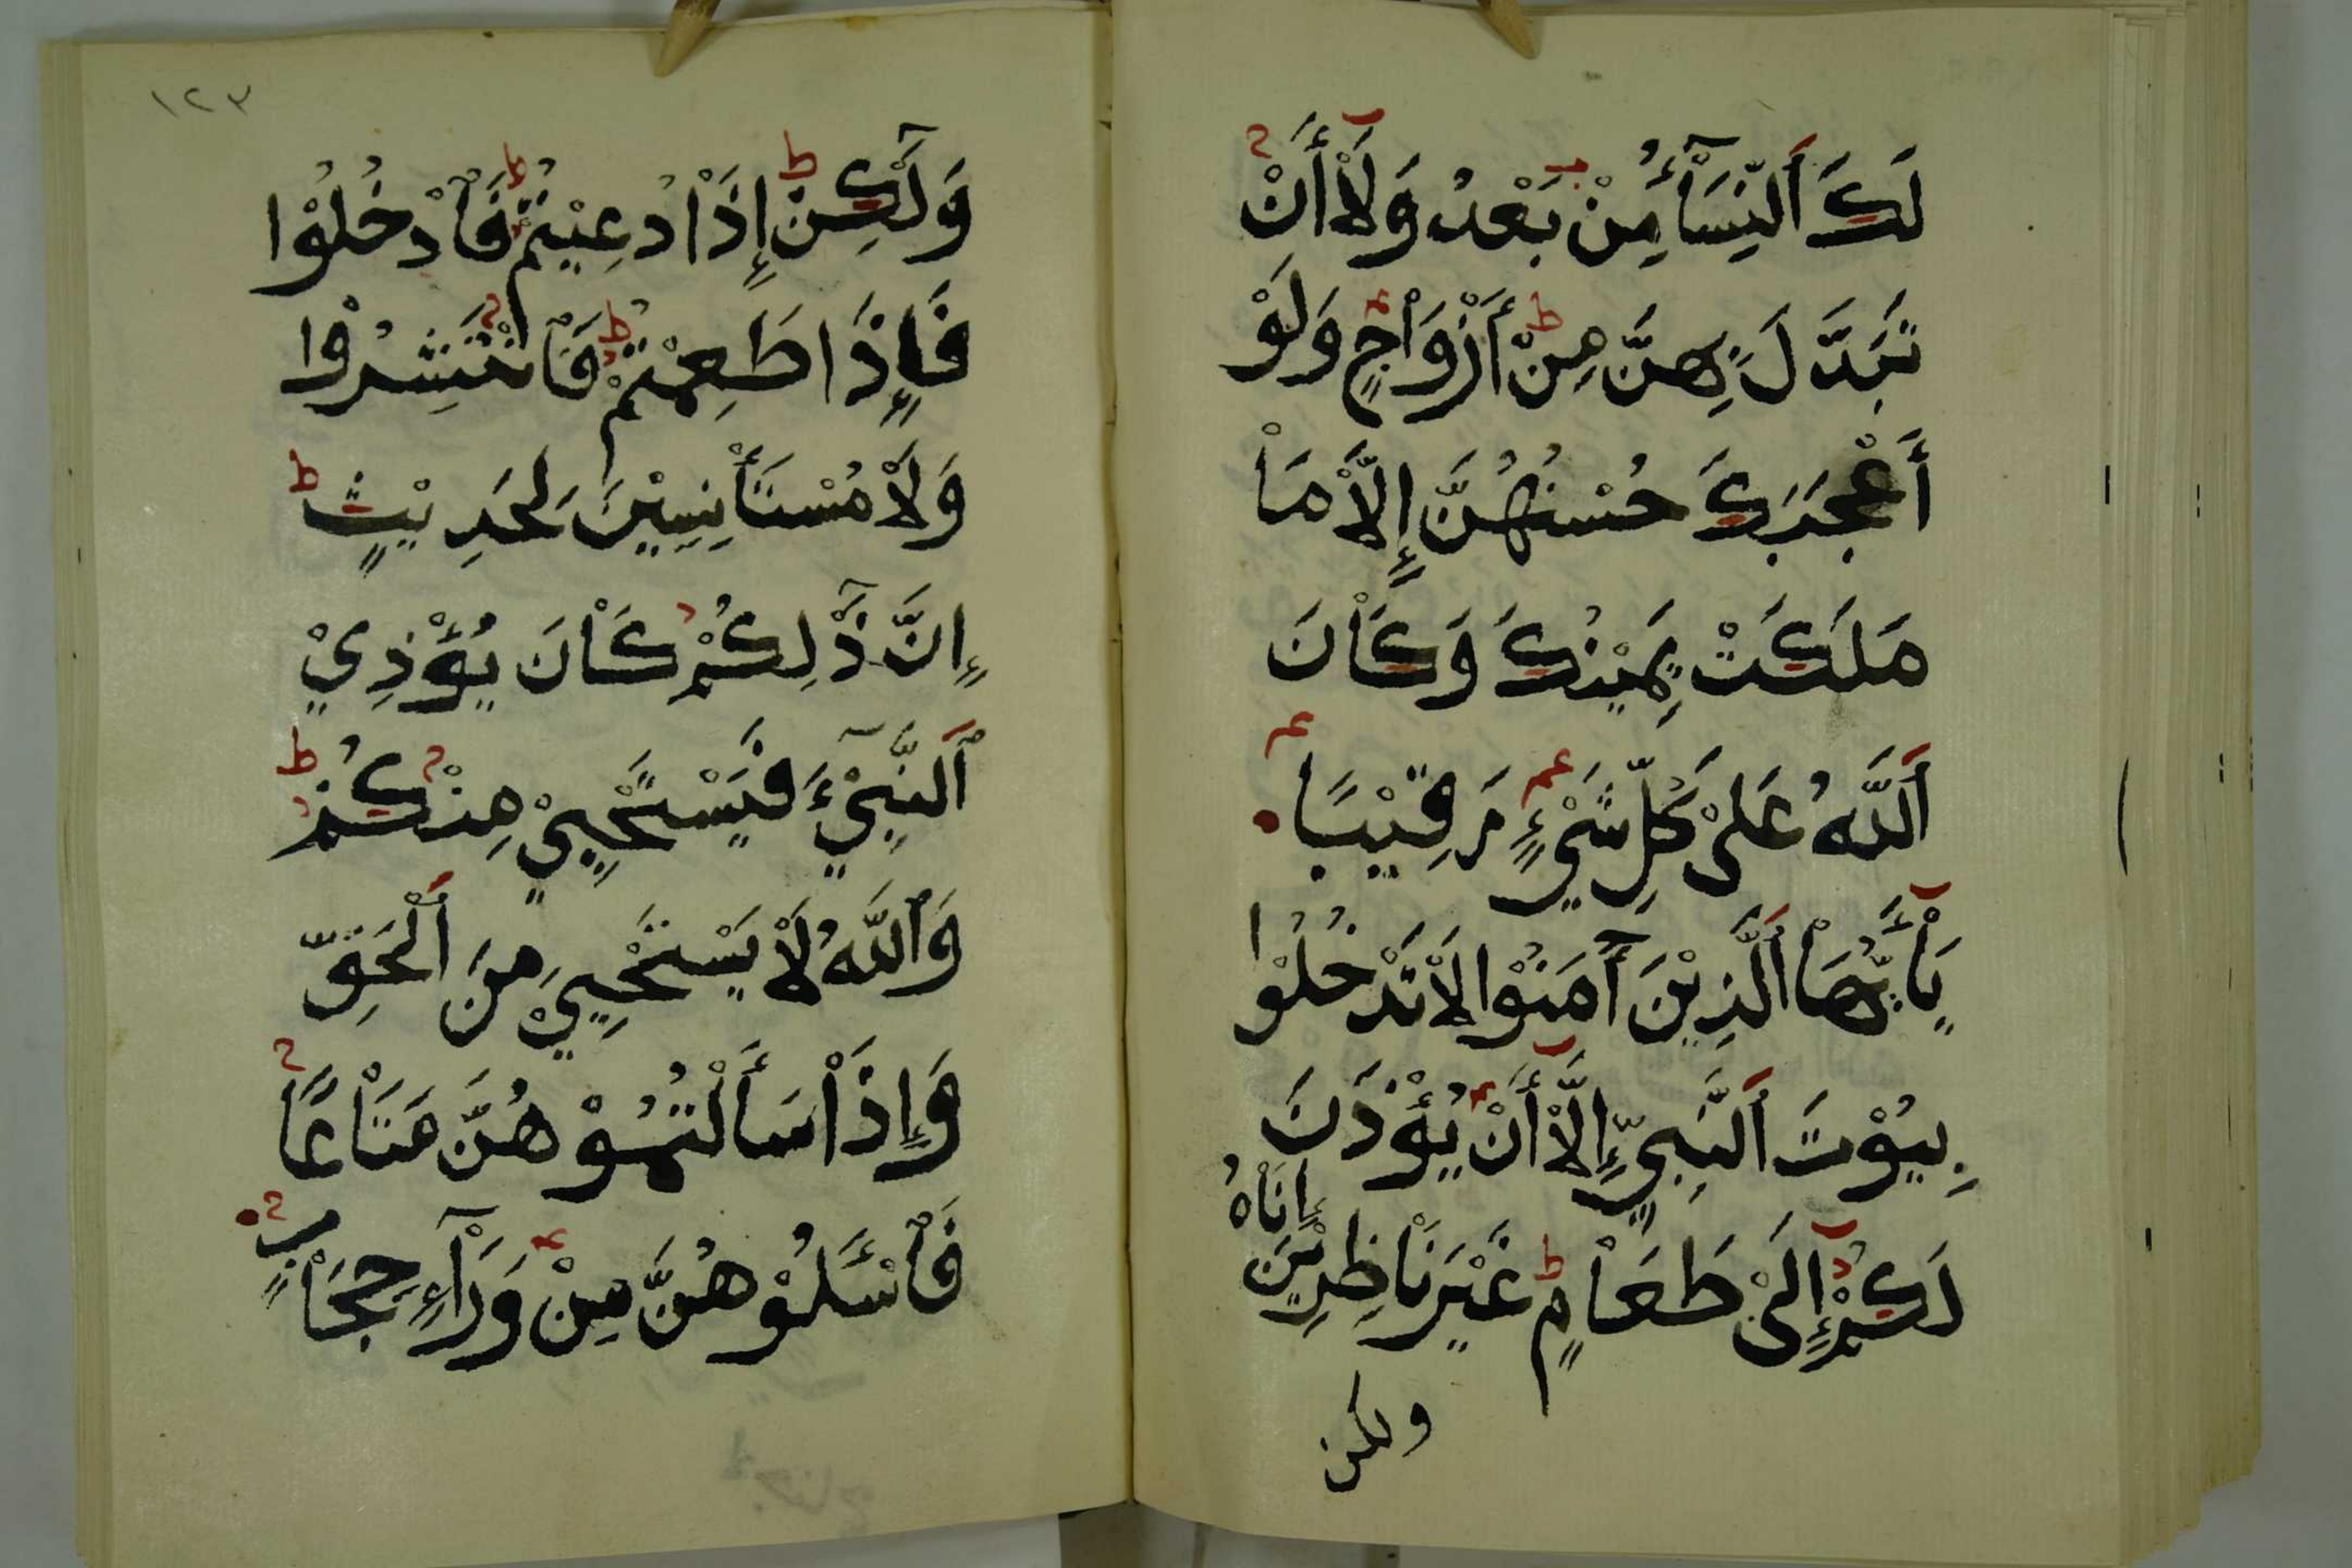 لَكَ اَلنِّسَآءُ مِنْ بَعْدُ وَلَاْ أَنْ
تَبَدَّلَ بِهِنَّ مِنْ أَزْوَاْجٍ وَلَوْ
أَعْجَبَكَ حُسْنُهُنَّ إِلَّاْ مَاْ
مَلَكَتْ يَمِيْنُكَ وَكَاْنَ
اَللَّهُ عَلَىْ كُلِّ شَيْءٍ رَقِيْبًا
يَاْأَيُّهَاْ اَلَّذِيْنَ آمَنُوْا لَاْ تَدْخُلُوْا
بِيُوْتَ اَلنَّبِيِّ إِلَّاْ أَنْ يُؤْذَنَ
لَكُمْ إِلَىْ طَعَاْمٍ غَيْرَ نَاْظِرِيْنَ إِنَاهُ
ولكن
١٢٣
وَلَكِنْ إِذَاْ دُعِيْتُمْ فَاْدْخُلُوْا
فَإِذَا طَعِمْتُمْ فَاْنْتَشِرُوْا
وَلَاْ مُسْتَأْنِسِيْنَ لِحَدِيْثٍ
إِنَّ ذَٰلِكُمْ كَاْنَ يُؤْذِيْ
اَلنَّبِيْءَ فَيَسْتَحْيِيْ مِنْكُمْ
وَاللَّهُ لَاْ يَسْتَحْيِيْ مِنَ اَلْحَقِّ
وَإِذَاْ سَأَلْتُمُوْهُنَّ مَتَاْعًا
فَاسْئَلُوْهُنَّ مِنْ وَرَآءِ حِجَاْبٍ